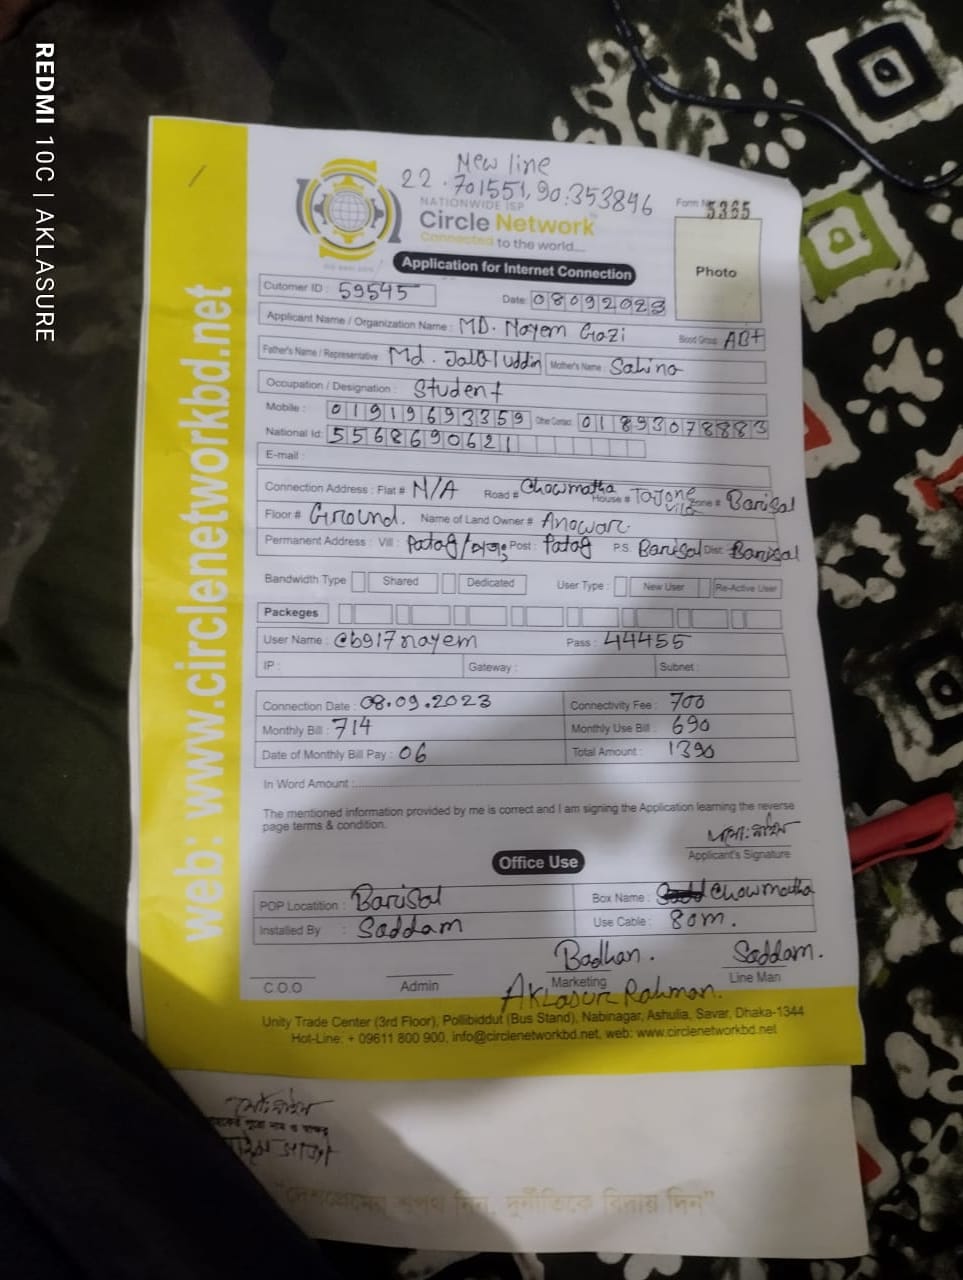 REDMI 10C | AKLASURE
web: www.circlenetworkbd.net
New line
22.701551, 90.353846
NATIONWIDE ISP
Circle Network
Connected to the world....
Form No 5365
Photo
Application for Internet Connection
Cutomer ID : 59545 Date: 08092023
Applicant Name / Organization Name : MD. Nayem Gazi Blood Group: AB+
Father's Name / Representative Md. Jalal Uddin Mother's Name : Sahina
Occupation / Designation : Student
Mobile : 01919693359 Other Contact 01893078883
National Id: 5568690621
E-mail :
Connection Address : Flat # N/A Road # Chowmatha House # Zone # Barisal
Floor # Ground. Name of Land Owner # Anowar
Permanent Address : Vill : Post : P.S. Barisal Dist: Barisal
Bandwidth Type Shared Dedicated User Type : New User Re-Active User
Packeges
User Name : cb917nayem Pass : 44455
IP : Gateway : Subnet :
Connection Date : 08.09.2023 Connectivity Fee : 700
Monthly Bill : 714 Monthly Use Bill : 690
Date of Monthly Bill Pay : 06 Total Amount : 1390
In Word Amount :
The mentioned information provided by me is correct and I am signing the Application learning the reverse
page terms & condition.
Applicant's Signature
Office Use
POP Locatition : Barisal Box Name : Chowmatha
Installed By : Saddam Use Cable : 80m.
Badhan. Saddam.
C.O.O Admin Marketing Line Man
Aklasur Rahman.
Unity Trade Center (3rd Floor), Pollibiddut (Bus Stand), Nabinagar, Ashulia, Savar, Dhaka-1344
Hot-Line: + 09611 800 900, info@circlenetworkbd.net, web: www.circlenetworkbd.net
"দেশপ্রেমের শপথ নিন, দুর্নীতিকে বিদায় দিন"